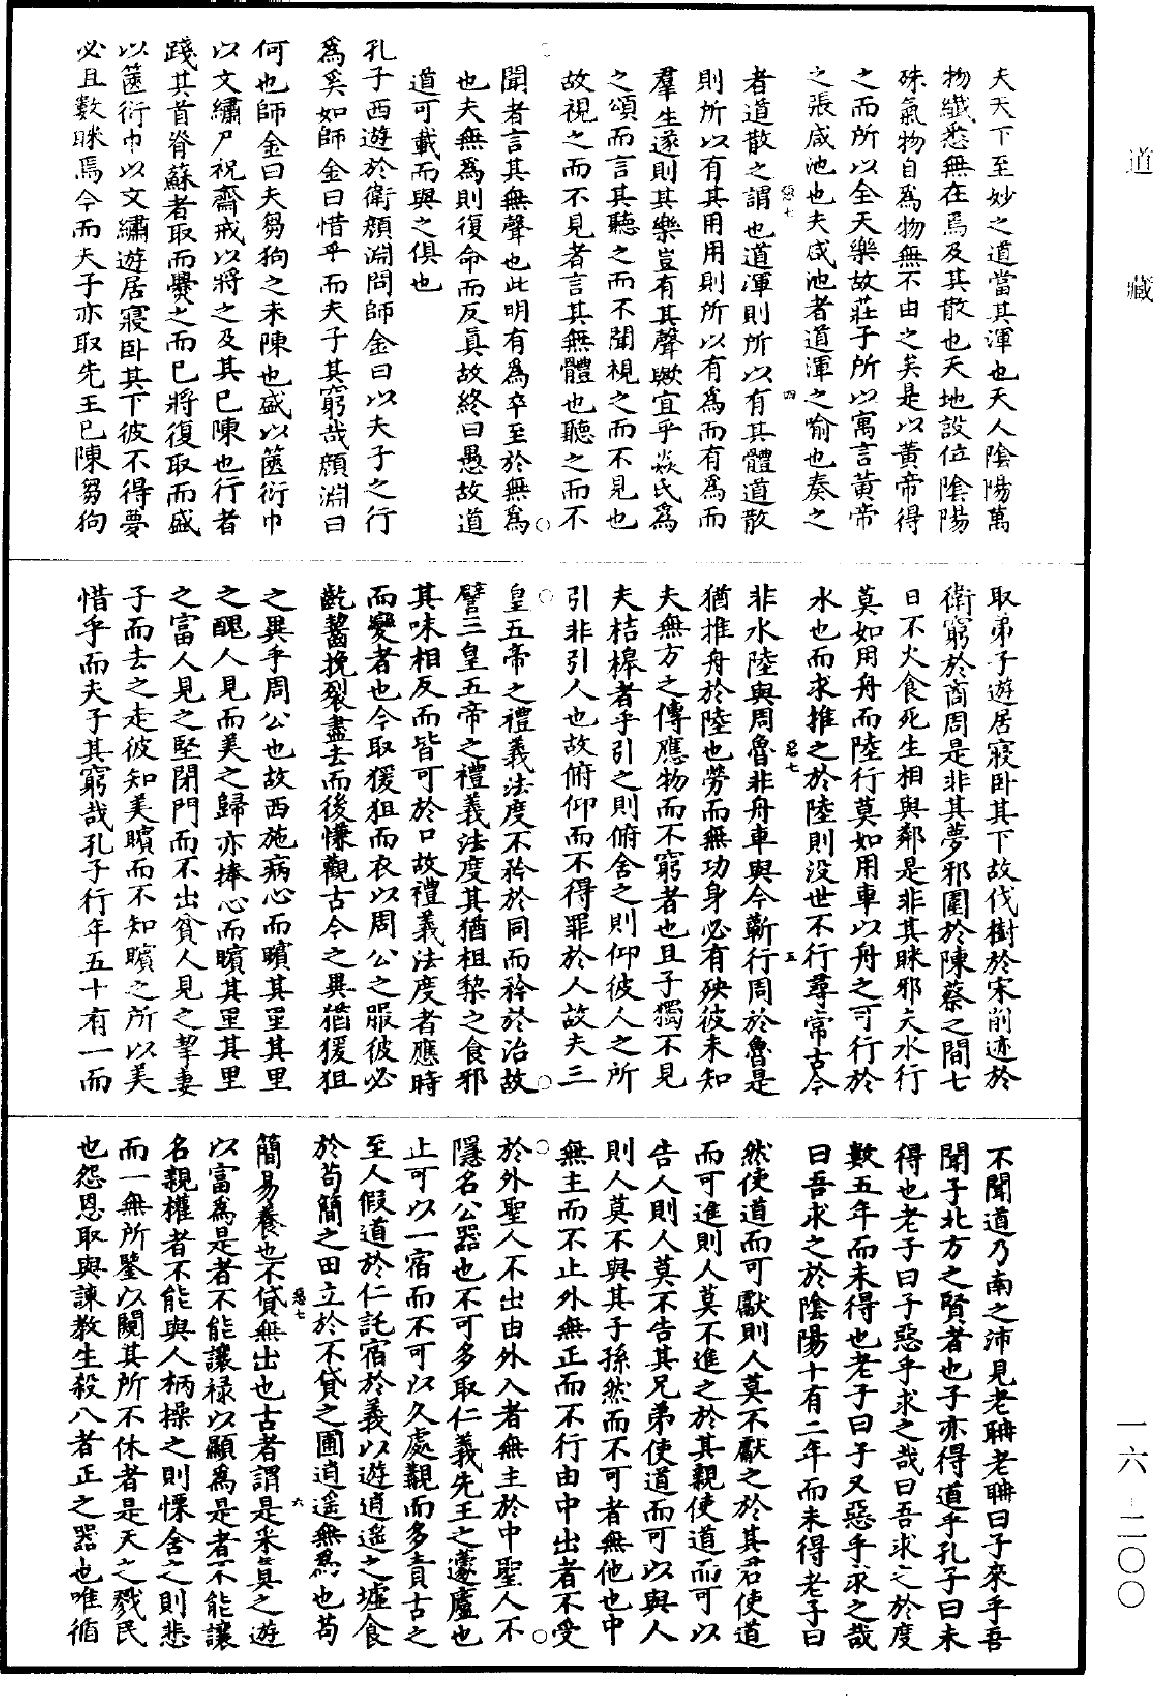 道藏
一六-二〇〇
夫天下至妙之道當其渾也天人陰陽萬
物纖悉無在焉及其散也天地設位陰陽
殊氣物自爲物無不由之矣是以黃帝得
之而所以全天樂故莊子所以寓言黃帝
之張咸池也夫咸池者道渾之喻也奏之
者道散之謂也道渾則所以有其體道散
則所以有其用用則所以有爲而有爲而
羣生遂則其樂豈有其聲歟宜乎焱氏爲
之頌而言其聽之而不聞視之而不見也
故視之而不見者言其無體也聽之而不
聞者言其無聲也此明有爲卒至於無爲
也夫無爲則復命而反真故終曰愚故道
道可載而與之俱也
孔子西遊於衛顔淵問師金曰以夫子之行
爲奚如師金曰惜乎而夫子其窮哉顔淵曰
何也師金曰夫芻狗之未陳也盛以篋衍巾
以文繡尸祝齋戒以將之及其已陳也行者
踐其首脊蘇者取而爨之而已將復取而盛
以篋衍巾以文繡遊居寢卧其下彼不得夢
必且數眯焉今而夫子亦取先王已陳芻狗
取弟子遊居寢卧其下故伐樹於宋削迹於
衛窮於商周是非其夢邪圍於陳蔡之間七
日不火食死生相與鄰是非其眯邪夫水行
莫如用舟而陸行莫如用車以舟之可行於
水也而求推之於陸則没世不行尋常古今
非水陸與周魯非舟車與今蘄行周於魯是
猶推舟於陸也勞而無功身必有殃彼未知
夫無方之傳應物而不窮者也且子獨不見
夫桔橰者乎引之則俯舍之則仰彼人之所
引非引人也故俯仰而不得罪於人故夫三
皇五帝之禮義法度不矜於同而矜於治故
譬三皇五帝之禮義法度其猶柤棃之食邪
其味相反而皆可於口故禮義法度者應時
而變者也今取猨狙而衣以周公之服彼必
齕齧挽裂盡去而後慊觀古今之異猶猨狙
之異乎周公也故西施病心而矉其里其里
之醜人見而美之歸亦捧心而矉其里其里
之富人見之堅閉門而不出貧人見之挈妻
子而去之走彼知美矉而不知矉之所以美
惜乎而夫子其窮哉孔子行年五十有一而
不聞道乃南之沛見老聃老聃曰子來乎吾
聞子北方之賢者也子亦得道乎孔子曰未
得也老子曰子惡乎求之哉曰吾求之於度
數五年而未得也老子曰子又惡乎求之哉
曰吾求之於陰陽十有二年而未得老子曰
然使道而可獻則人莫不獻之於其君使道
而可進則人莫不進之於其親使道而可以
告人則人莫不告其兄弟使道而可以與人
則人莫不與其子孫然而不可者無他也中
無主而不止外無正而不行由中出者不受
於外聖人不出由外入者無主於中聖人不
隱名公器也不可多取仁義先王之蘧廬也
止可以一宿而不可以久處覯而多責古之
至人假道於仁託宿於義以遊逍遥之墟食
於苟簡之田立於不貸之圃逍遥無爲也苟
簡易養也不貸無出也古者謂是采真之遊
以富爲是者不能讓禄以顯爲是者不能讓
名親權者不能與人柄操之則慄舍之則悲
而一無所鑒以闚其所不休者是天之戮民
也怨恩取與諫教生殺八者正之器也唯循